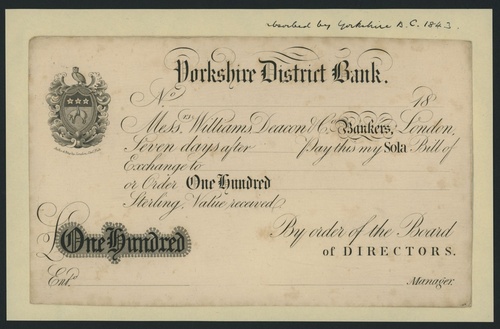 absorbed by Yorkshire B. C. 1843.
Yorkshire District Bank.
No. 18
Messrs. Williams Deacon & Co. Bankers, London,
Seven days after Pay this my Sola Bill of
Exchange to
or Order One Hundred
Sterling, Value received,
£ One Hundred
By order of the Board
of DIRECTORS.
Entd. Manager.